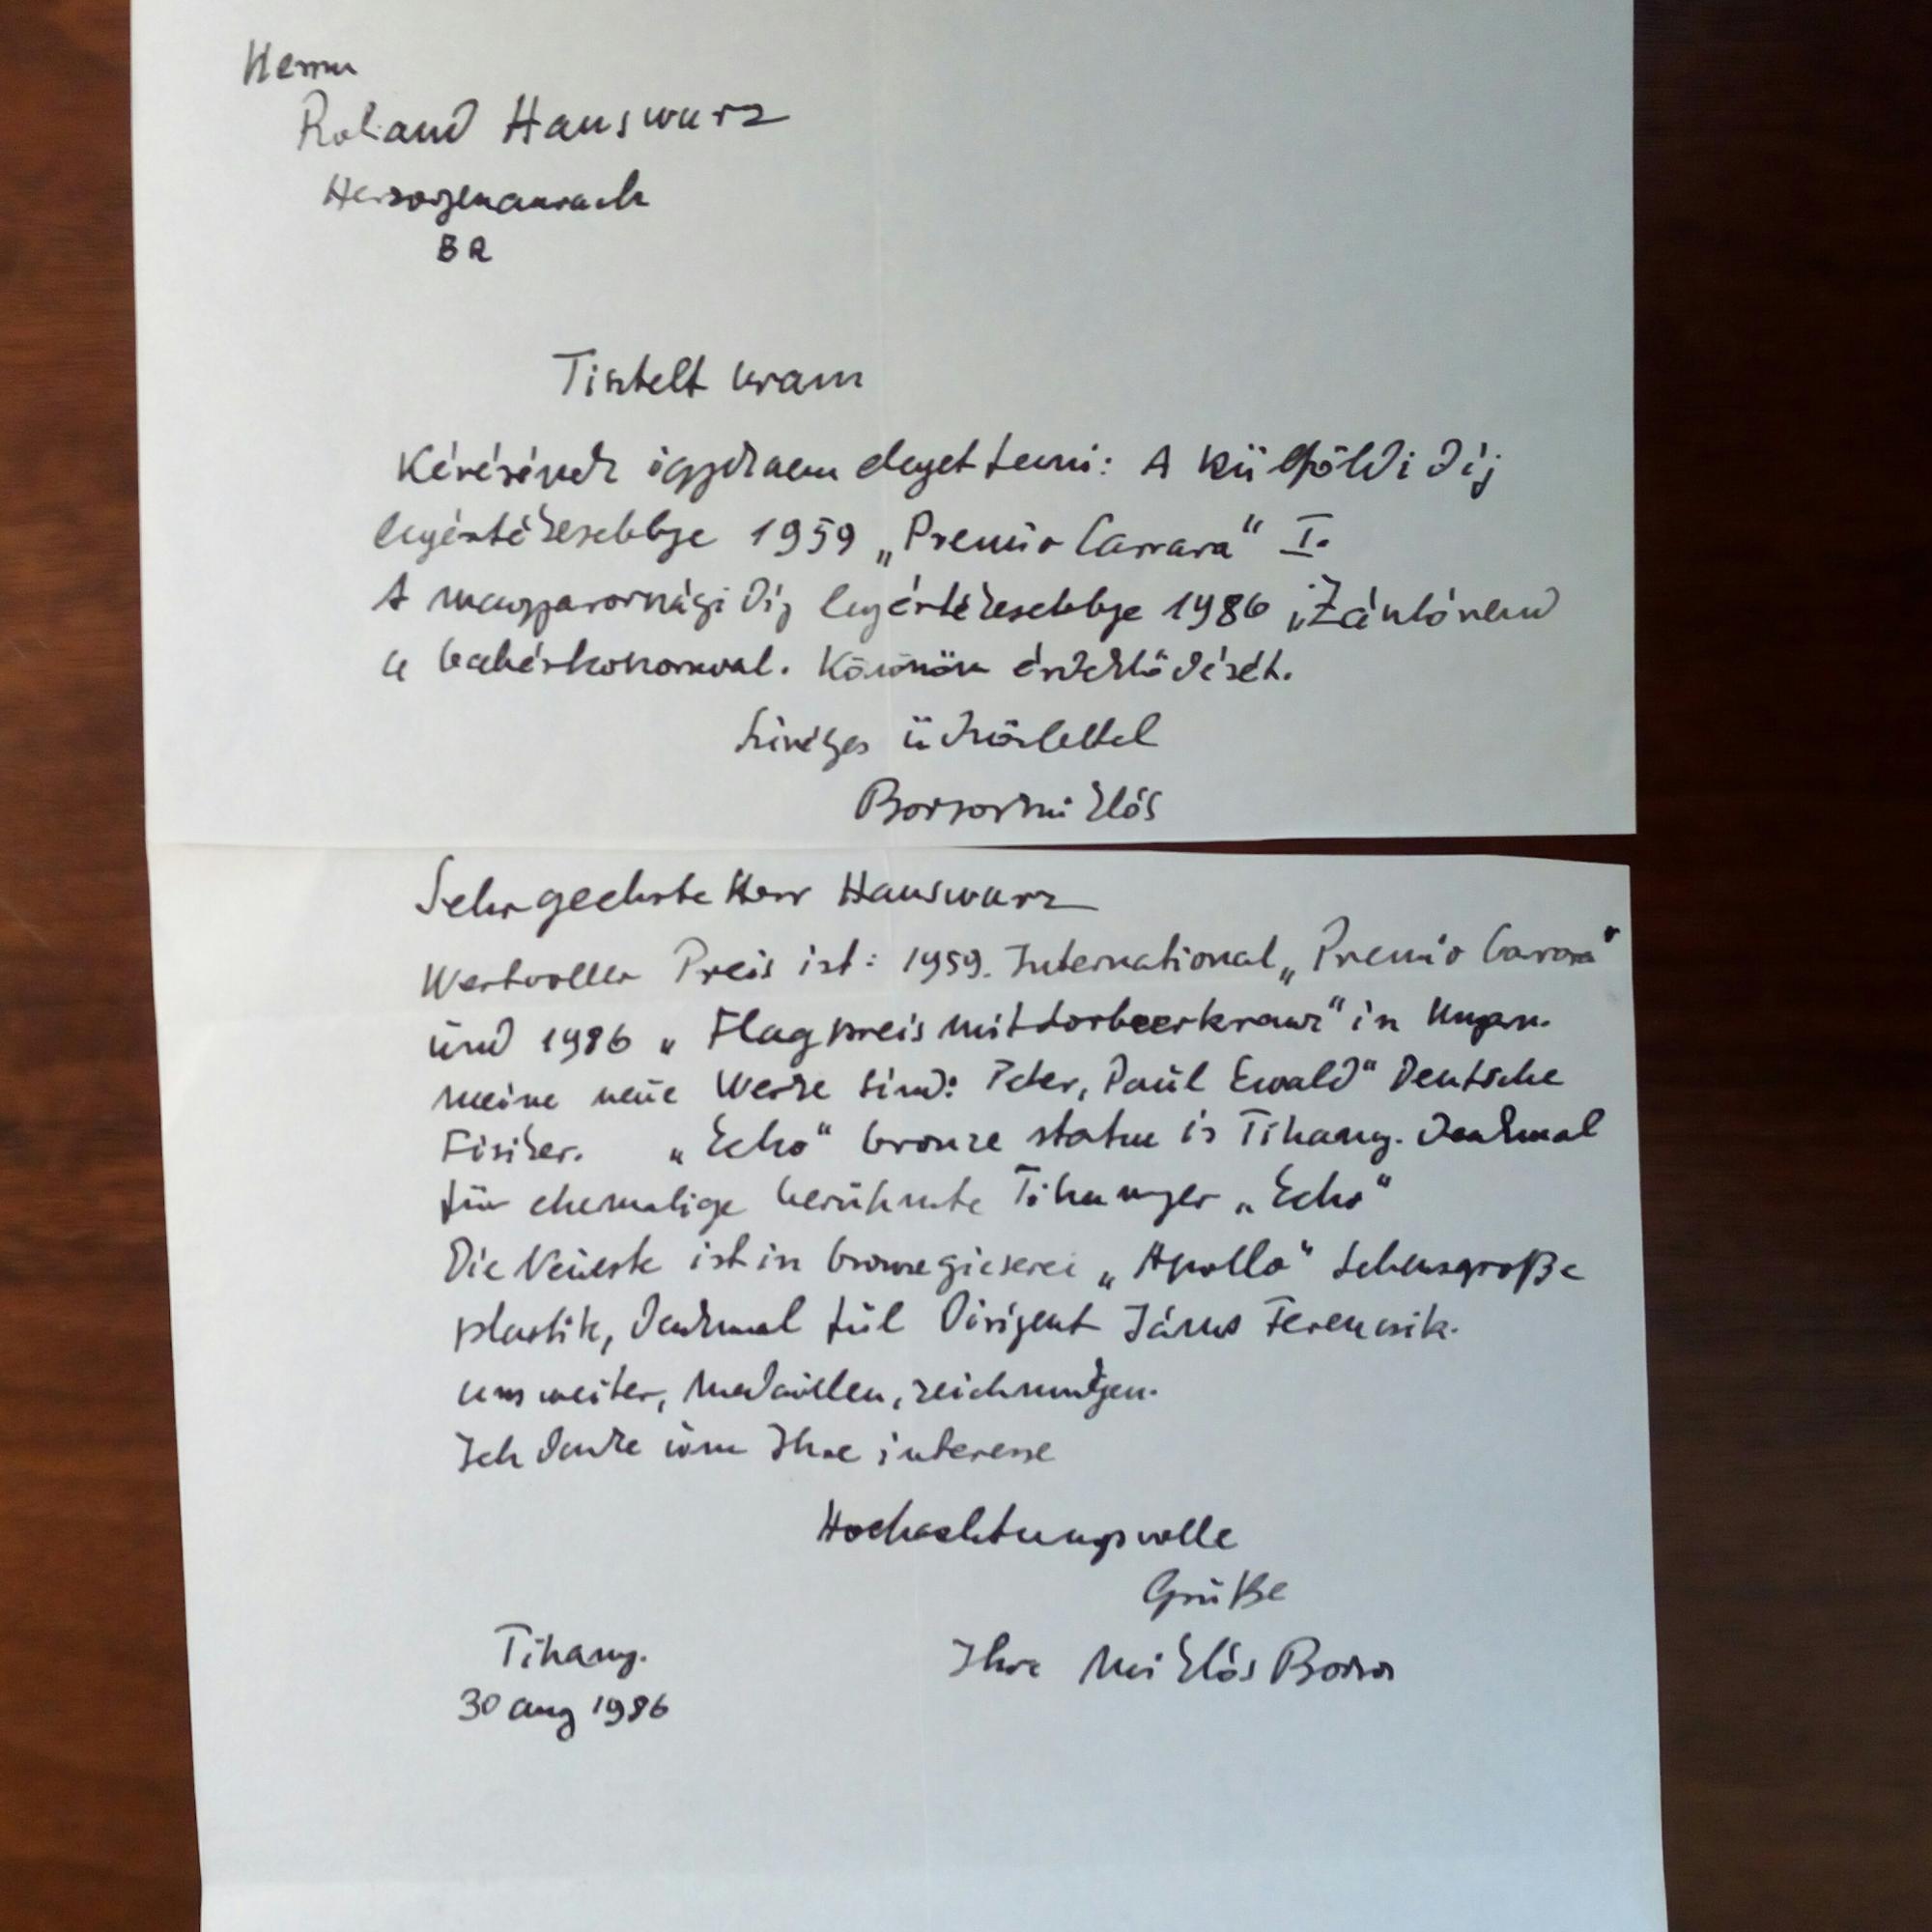 Herrn
Roland Hauswurz
Herzogenaurach
BR
Tisztelt uram
Kérésének igyekszem eleget tenni: A külföldi díj
legértékesebbje 1959 „Premio Carrara" I.
A magyarországi díj legértékesebbje 1986 „Zászlórend
a babérkoszorúval. Köszönöm érdeklődését.
Szíves üdvözlettel
Borsos Miklós
Sehr geehrte Herr Hauswurz
Wertvoller Preis ist: 1959. International „Premio Carrara"
ünd 1986 „Flagpreis mit Lorbeerkranz" in Ungarn.
meine neüe Werke sind: Peter, Paül Ewald" Deutsche
Fisiker. „Echo" bronze statue is Tihany. Denkmal
für ehemalige berühmte Tihanyer „Echo"
Die Neüeste ist in bronzegieserei „Apollo" Lebensgroße
plastik, Denkmal fül Dirigent János Ferencsik.
weiter, Medaillen, zeichnungen.
Ich danke Ihre interesse
Hochachtungsvolle
Grüße
Tihany. Ihre Miklós Borsos
30 aug 1986